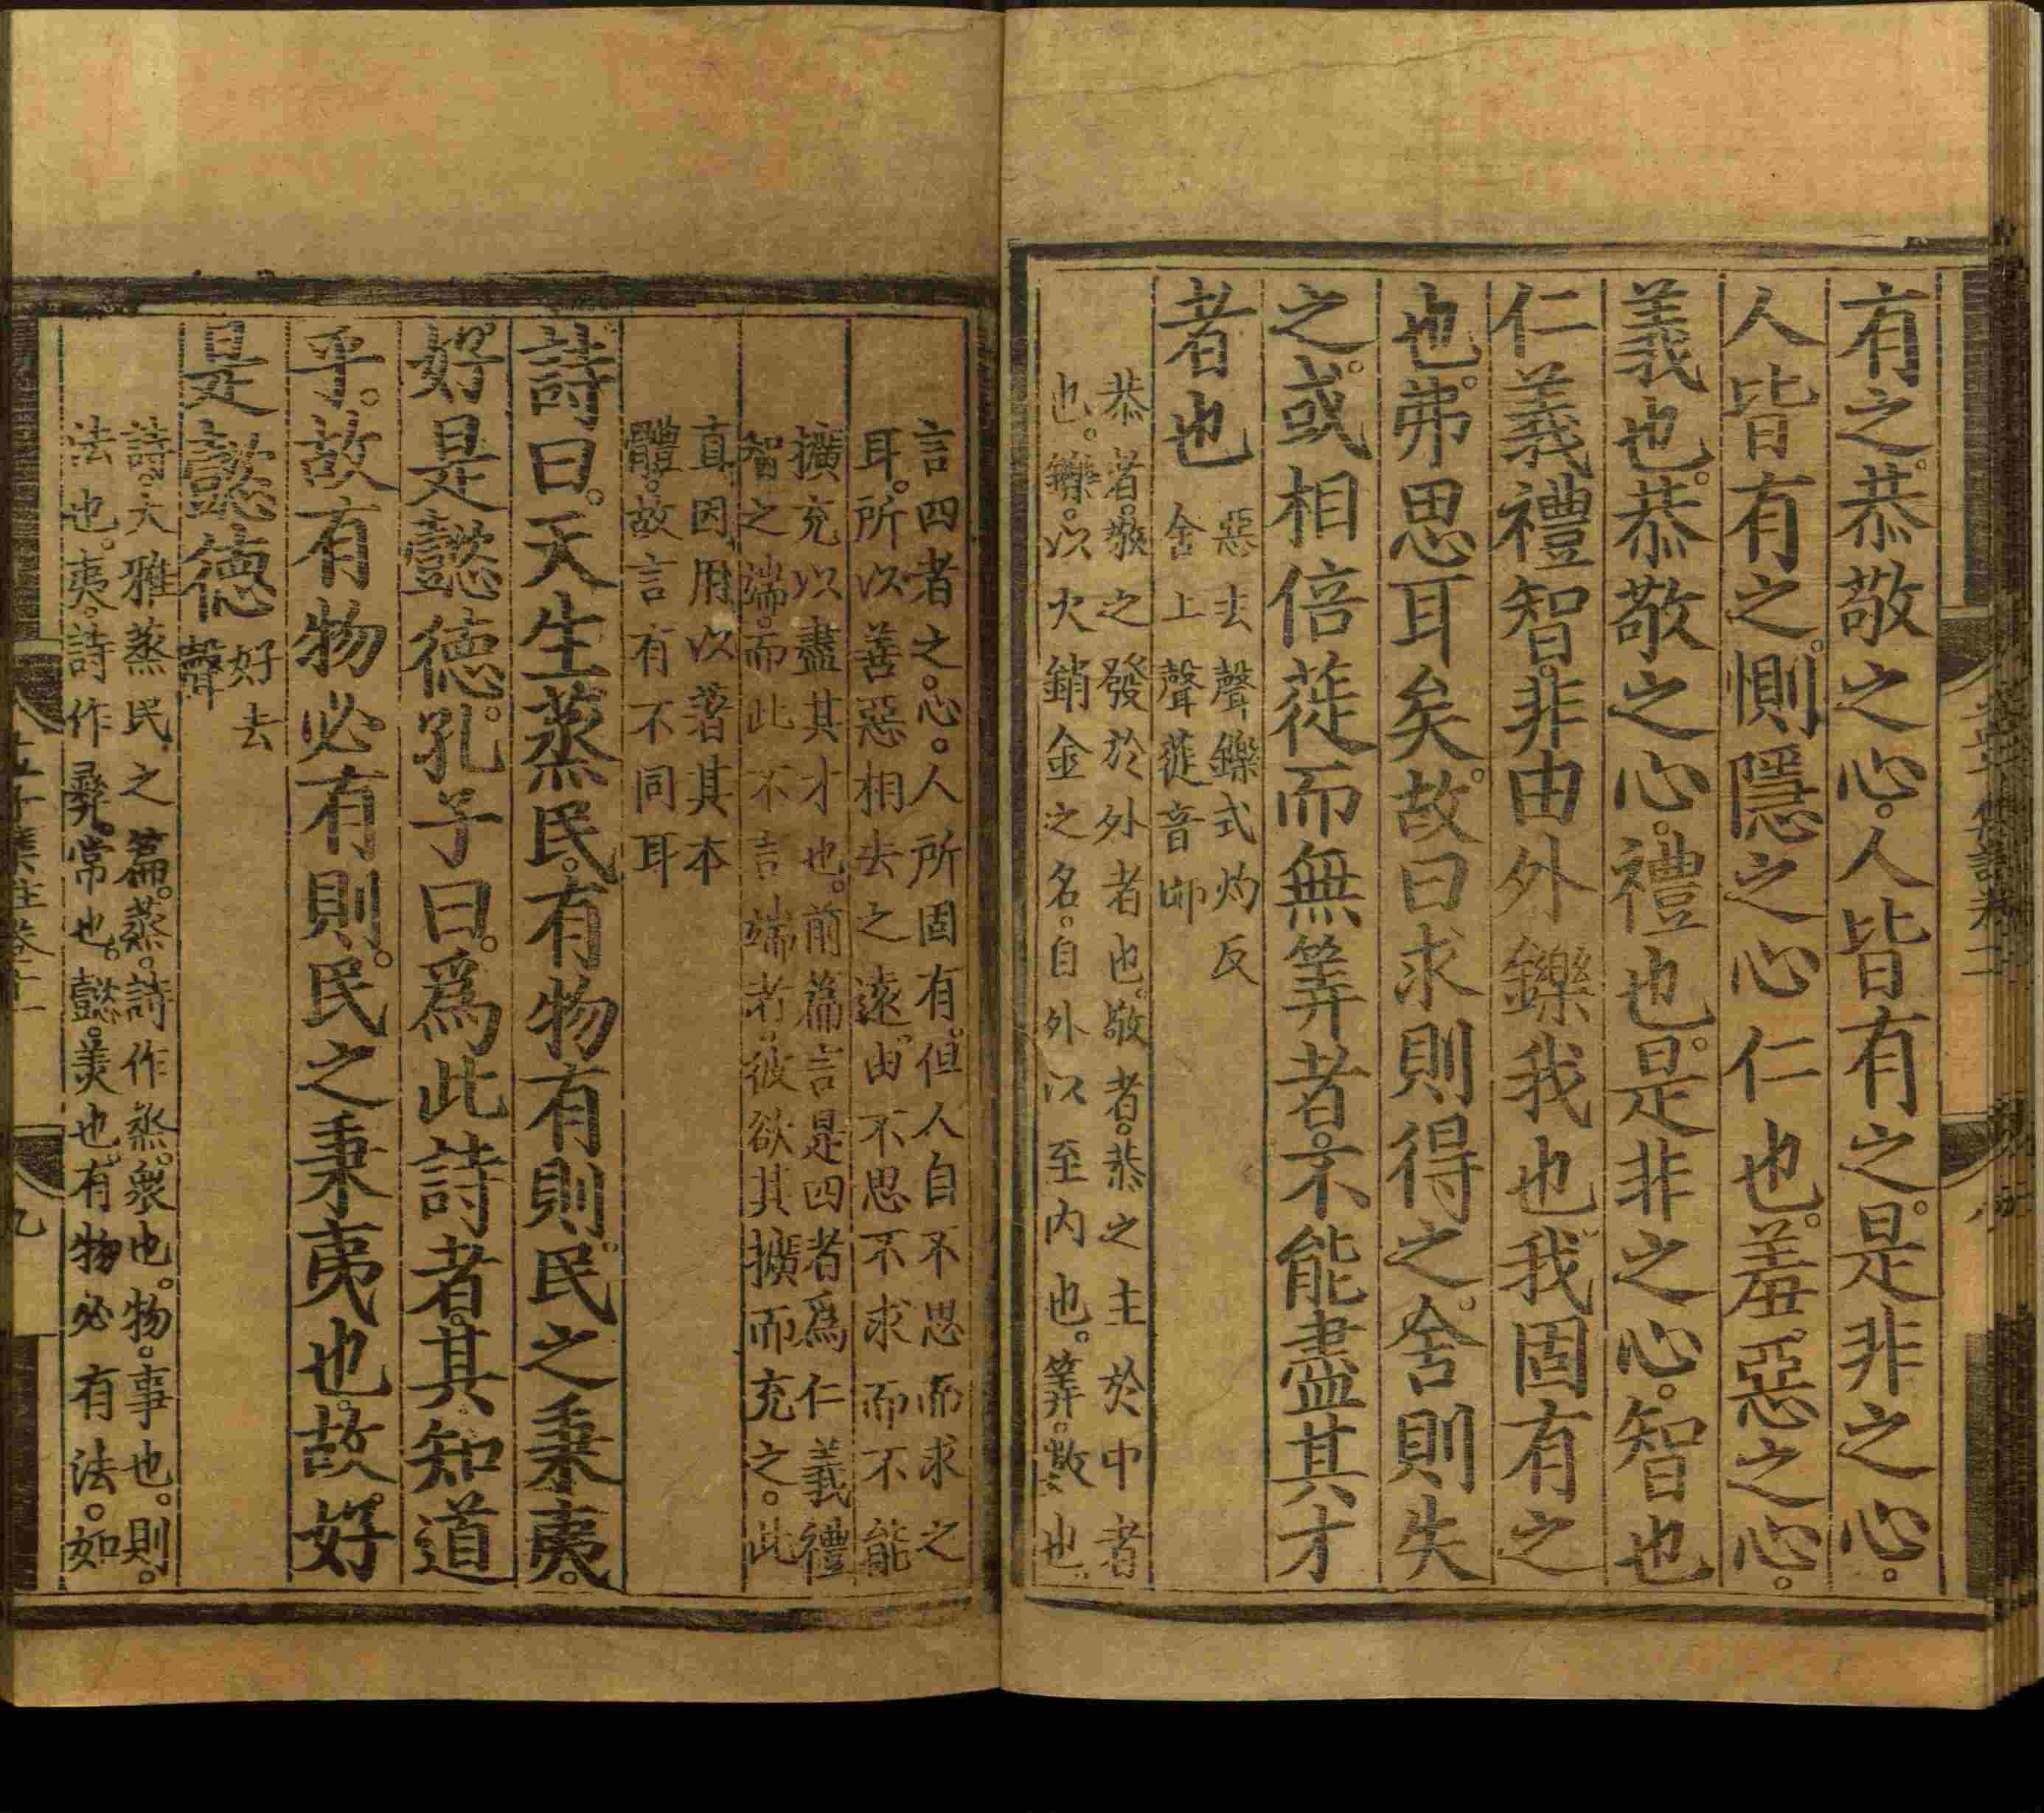 有之。恭敬之心。人皆有之。是非之心。
人皆有之。惻隱之心仁也。羞惡之心。
義也。恭敬之心。禮也。是非之心。智也
仁義禮智。非由外鑠我也。我固有之
也。弗思耳矣。故曰求則得之。舍則失
之。或相倍蓰而無筭者。不能盡其才
者也
惡去聲鑠式灼反
舍上聲蓰音師
恭者。敬之發於外者也。敬者。恭之主於中者
也。鑠。以火銷金之名。自外以至內也。筭。數也。
言四者之。心。人所固有。但人自不思而求之
耳。所以善惡相去之遠。由不思不求而不能
擴充以盡其才也。前篇言是四者爲仁義禮
智之端。而此不言端者。彼欲其擴而充之。此
直因用以著其本
體。故言有不同耳
詩曰。天生蒸民。有物有則。民之秉夷。
好是懿德。孔子曰。爲此詩者。其知道
乎。故有物必有則。民之秉夷也。故好
是懿德
好去
聲
詩。大雅蒸民之篇。蒸。詩作烝。衆也。物。事也。則。
法也。夷。詩作彛。常也。懿。美也。有物必有法。如
九